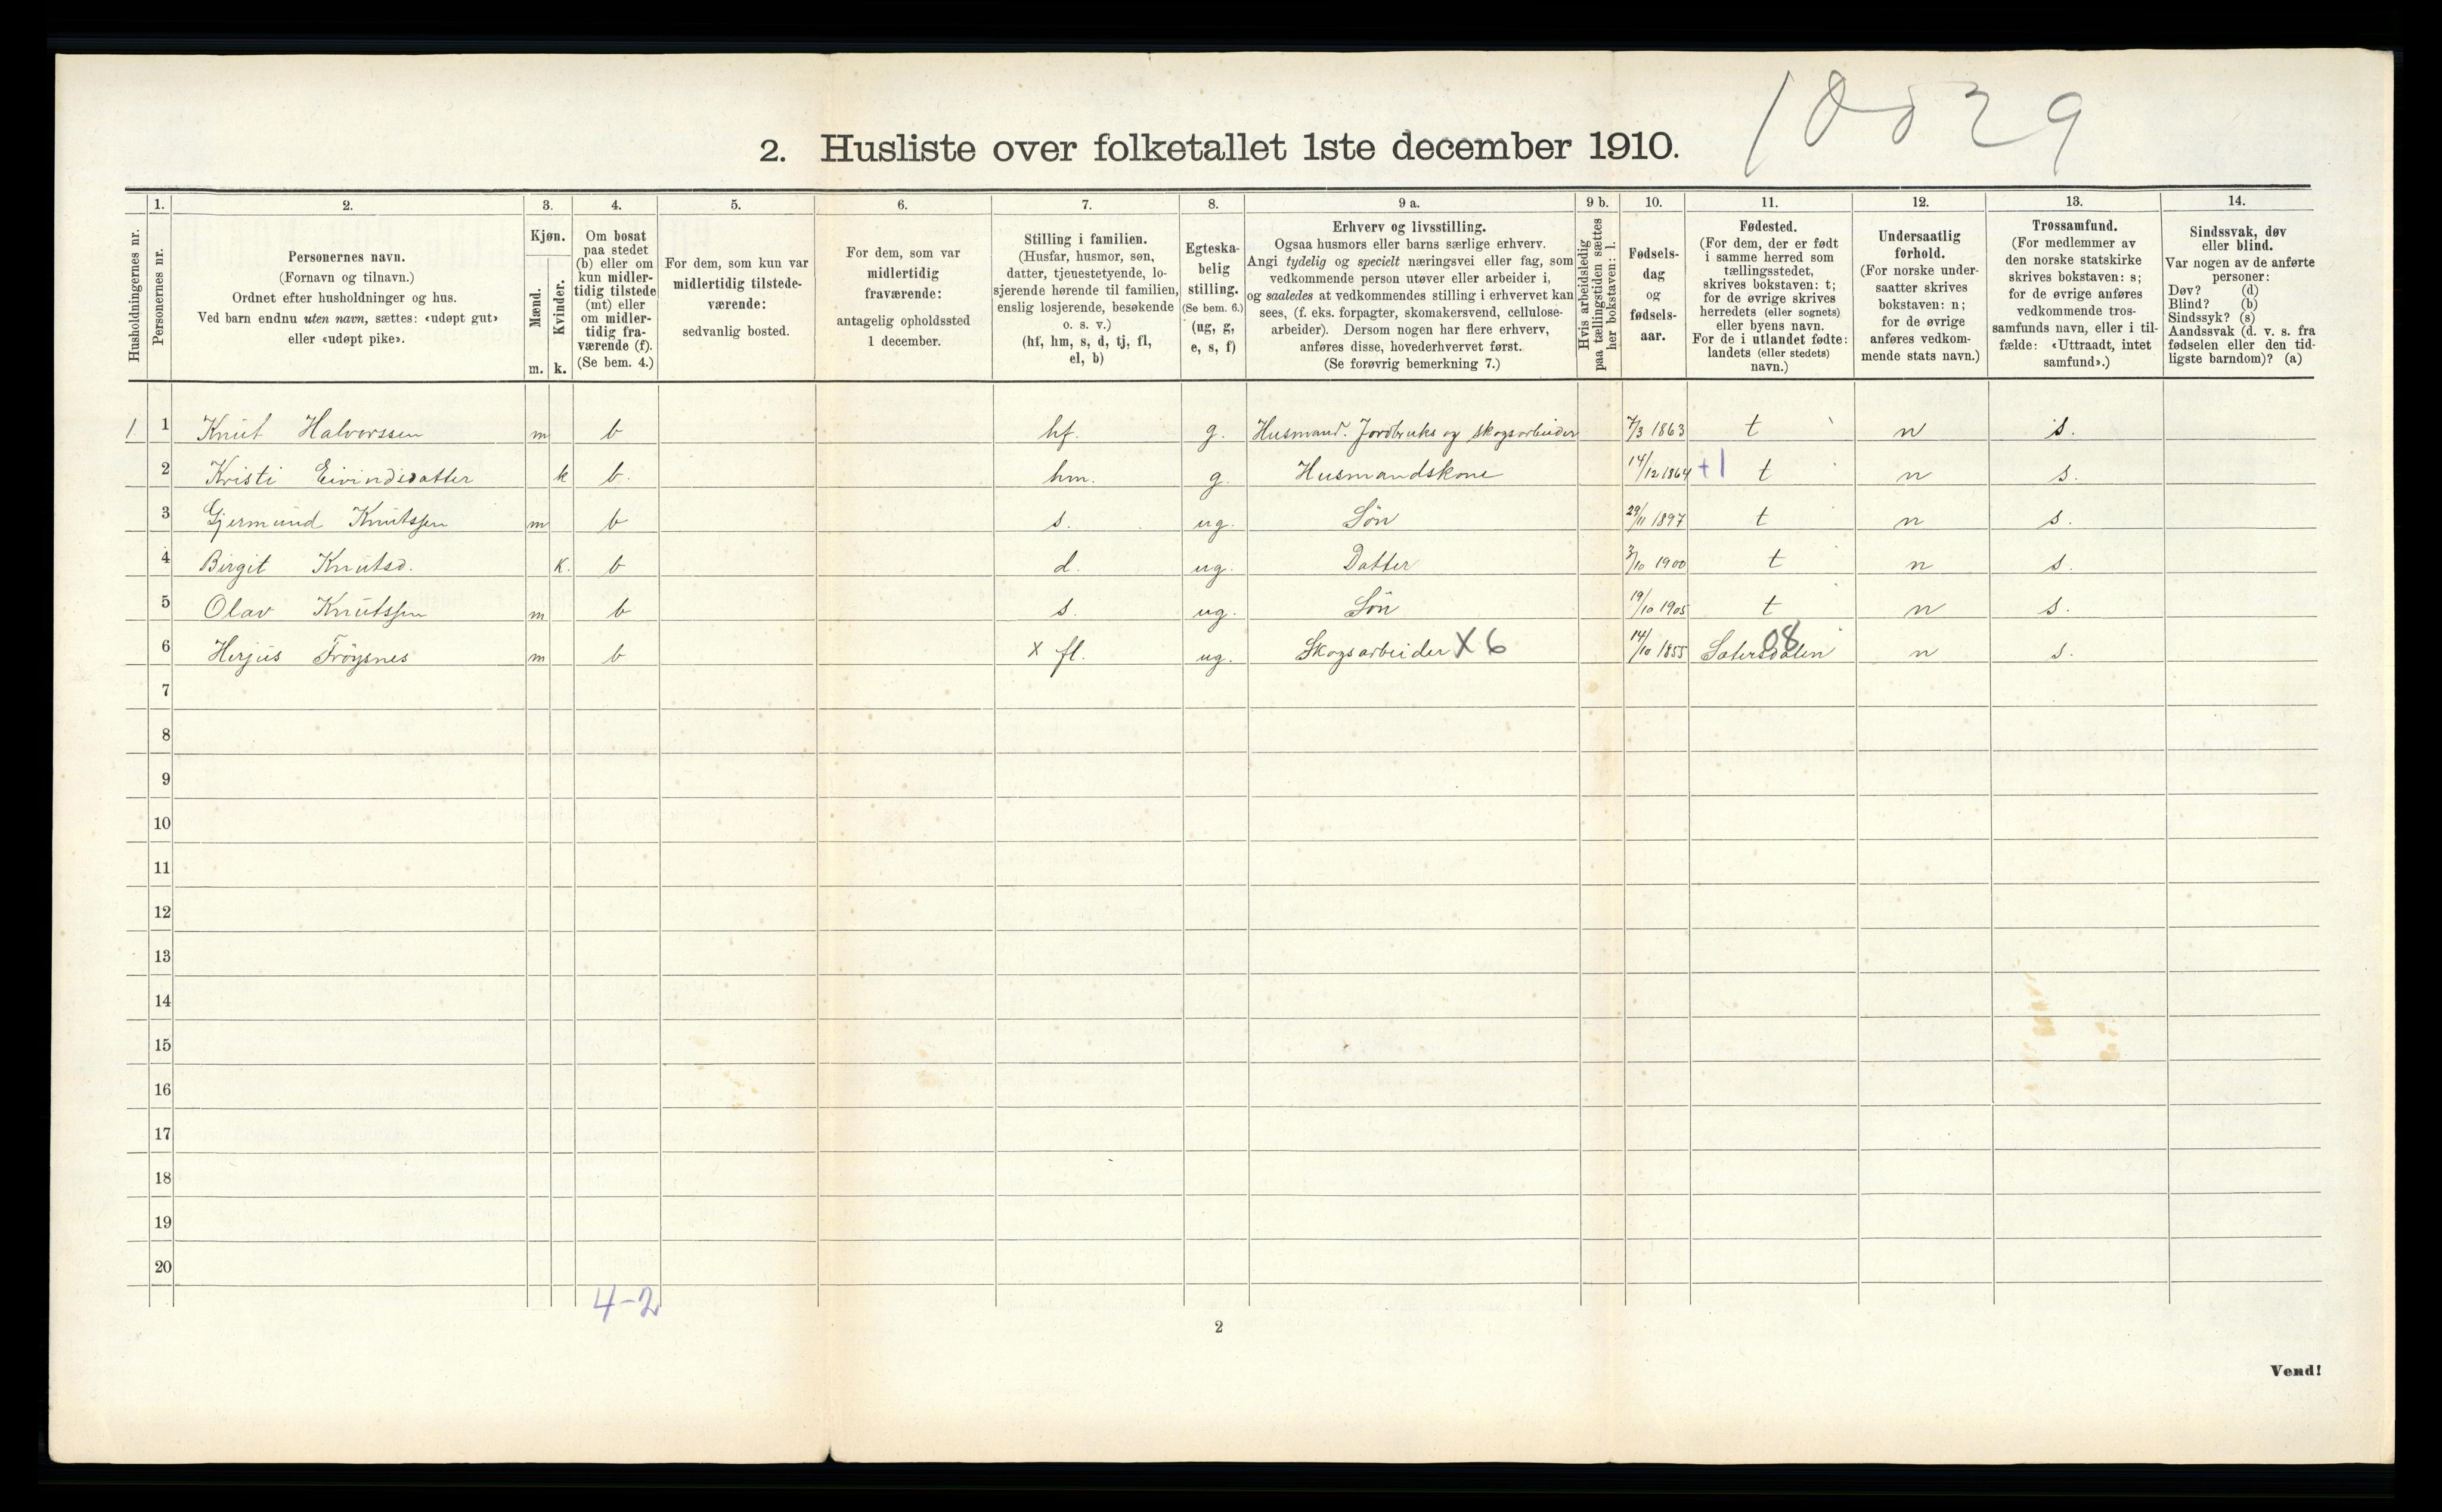 10529
2. Husliste over folketallet 1ste december 1910.
Husholdningernes nr.
1.
Personernes nr.
2.
Personernes navn.
(Fornavn og tilnavn.)
Ordnet efter husholdninger og hus.
Ved barn endnu uten navn, sættes: «udøpt gut»
eller «udøpt pike».
3.
Kjøn.
Mænd. Kvinder.
m. k.
4.
Om bosat
paa stedet
(b) eller om
kun midler-
tidig tilstede
(mt) eller
om midler-
tidig fra-
værende (f).
(Se bem. 4.)
5.
For dem, som kun var
midlertidig tilstede-
værende:
sedvanlig bosted.
6.
For dem, som var
midlertidig
fraværende:
antagelig opholdssted
1 december.
7.
Stilling i familien.
(Husfar, husmor, søn,
datter, tjenestetyende, lo-
sjerende hørende til familien,
enslig losjerende, besøkende
o. s. v.)
(hf, hm, s, d, tj, fl,
el, b)
8.
Egteska-
belig
stilling.
(Se bem. 6.)
(ug, g,
e, s, f)
9 a.
Erhverv og livsstilling.
Ogsaa husmors eller barns særlige erhverv.
Angi tydelig og specielt næringsvei eller fag, som
vedkommende person utøver eller arbeider i,
og saaledes at vedkommendes stilling i erhvervet kan
sees, (f. eks. forpagter, skomakersvend, cellulose-
arbeider). Dersom nogen har flere erhverv,
anføres disse, hovederhvervet først.
(Se forøvrig bemerkning 7.)
9 b.
Hvis arbeidsledig
paa tællingstiden sættes
her bokstaven: l.
10.
Fødsels-
dag
og
fødsels-
aar.
11.
Fødested.
(For dem, der er født
i samme herred som
tællingsstedet,
skrives bokstaven: t;
for de øvrige skrives
herredets (eller sognets)
eller byens navn.
For de i utlandet fødte:
landets (eller stedets)
navn.)
12.
Undersaatlig
forhold.
(For norske under-
saatter skrives
bokstaven: n;
for de øvrige
anføres vedkom-
mende stats navn.)
13.
Trossamfund.
(For medlemmer av
den norske statskirke
skrives bokstaven: s;
for de øvrige anføres
vedkommende tros-
samfunds navn, eller i til-
fælde: «Uttraadt, intet
samfund».)
14.
Sindssvak, døv
eller blind.
Var nogen av de anførte
personer:
Døv? (d)
Blind? (b)
Sindssyk? (s)
Aandssvak (d. v. s. fra
fødselen eller den tid-
ligste barndom)? (a)
1 1 Knut Halvorssen m b hf. g. Husmand. Jordbruks og skogsarbeider 7/3 1863 t n s.
2 Kristi Eivindsdatter k b. hm. g. Husmandskone 14/12 1864 +1 t n s.
3 Gjermund Knutssen m b s. ug. Søn 29/11 1897 t n s.
4 Birgit Knutsd. k. b d. ug. Datter 3/10 1900 t n s.
5 Olav Knutssen m b s. ug. Søn 19/10 1905 t n s.
6 Herjus Frøysnes m b x fl. ug. Skogsarbeider X6 14/10 1855 Sætersdalen 08 n s.
7
8
9
10
11
12
13
14
15
16
17
18
19
20
4-2
2
Vend!